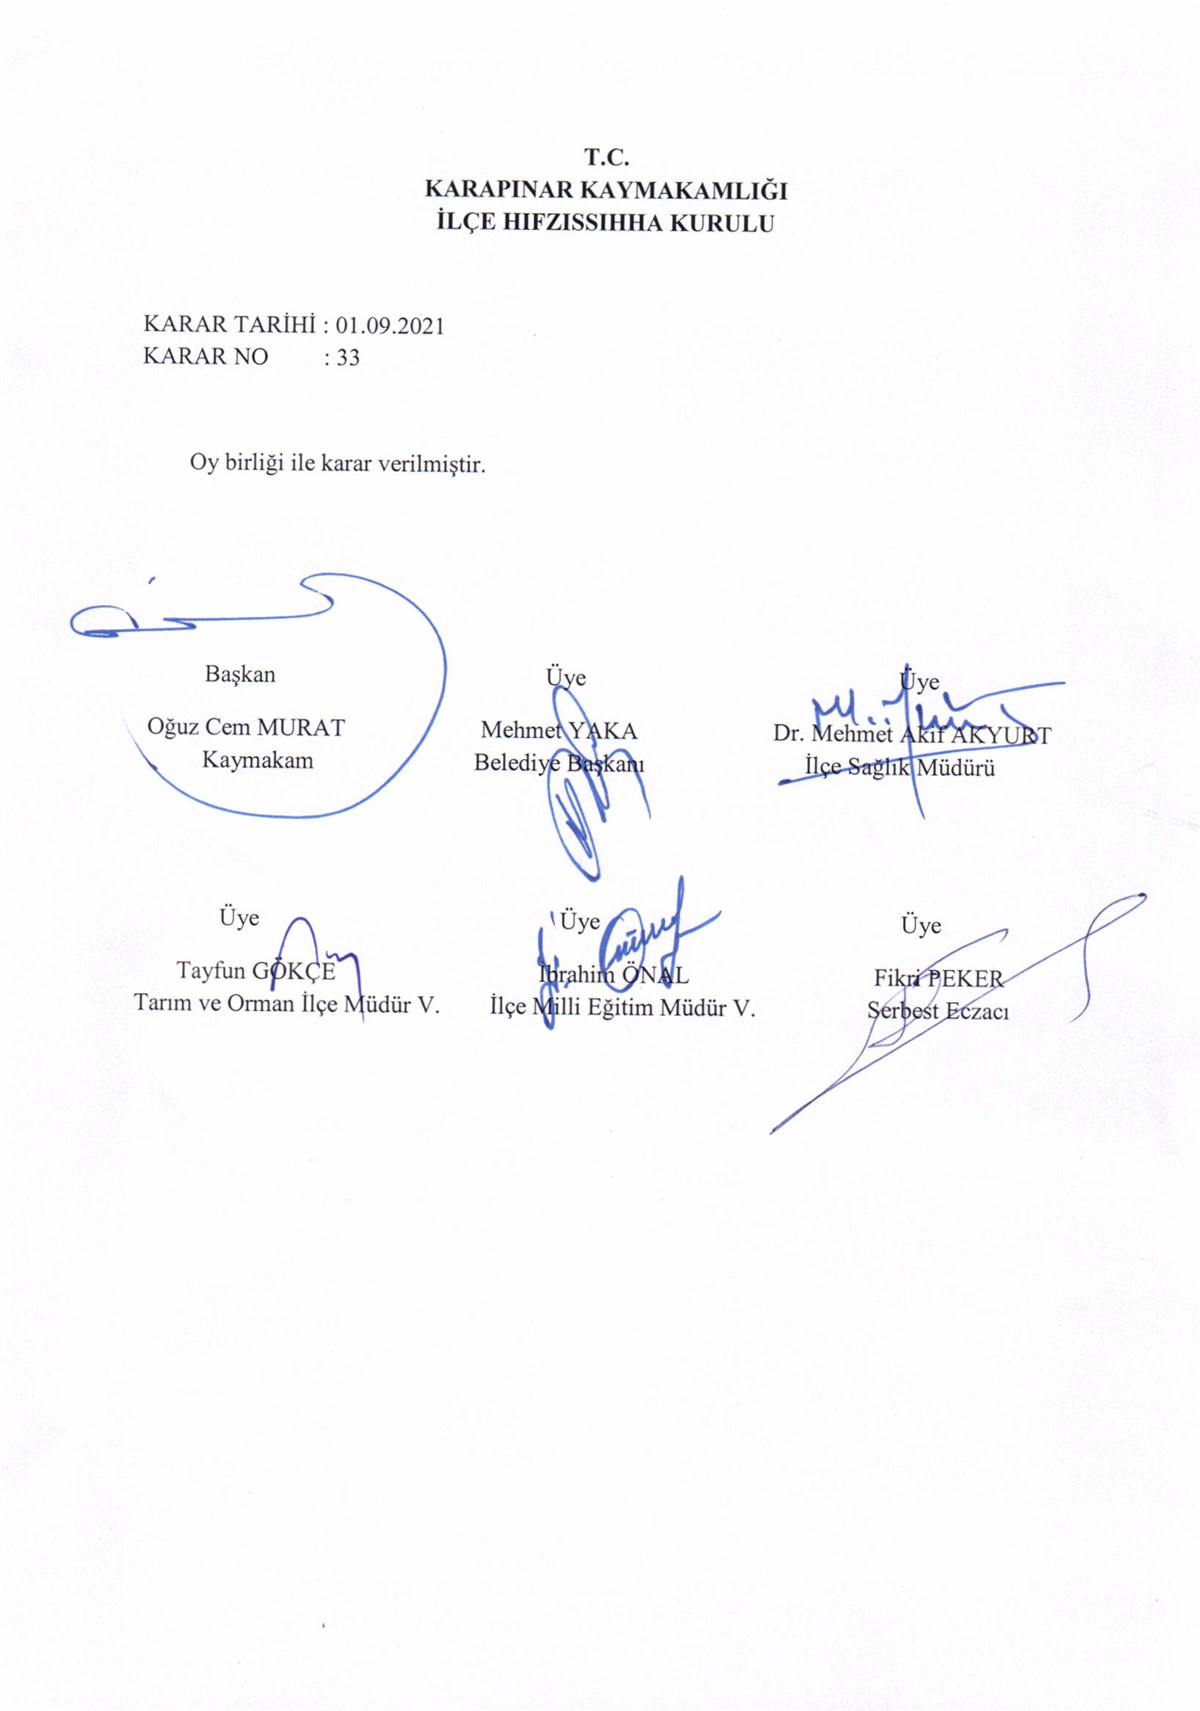 T.C.
KARAPINAR KAYMAKAMLIĞI
İLÇE HIFZISSIHHA KURULU
KARAR TARİHİ : 01.09.2021
KARAR NO : 33
Oy birliği ile karar verilmiştir.
Başkan
Oğuz Cem MURAT
Kaymakam
Üye
Mehmet YAKA
Belediye Başkanı
Üye
Dr. Mehmet Akif AKYURT
İlçe Sağlık Müdürü
Üye
Tayfun GÖKÇE
Tarım ve Orman İlçe Müdür V.
Üye
İbrahim ÖNAL
İlçe Milli Eğitim Müdür V.
Üye
Fikri PEKER
Serbest Eczacı